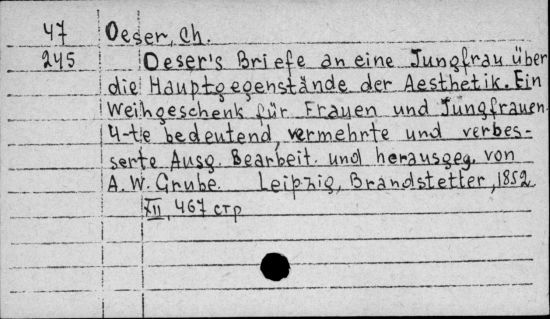 47 Oeser, Ch.
245 Oeser's Briefe an eine Jungfrau über
die Hauptgegenstände der Aesthetik. Ein
Weihgeschenk für Frauen und Jungfrauen.
4-te bedeutend, vermehrte und verbes-
serte Ausg. Bearbeit. und herausgeg. von
A. W. Grube. Leipzig, Brandstetter, 1852
XII, 467 стр